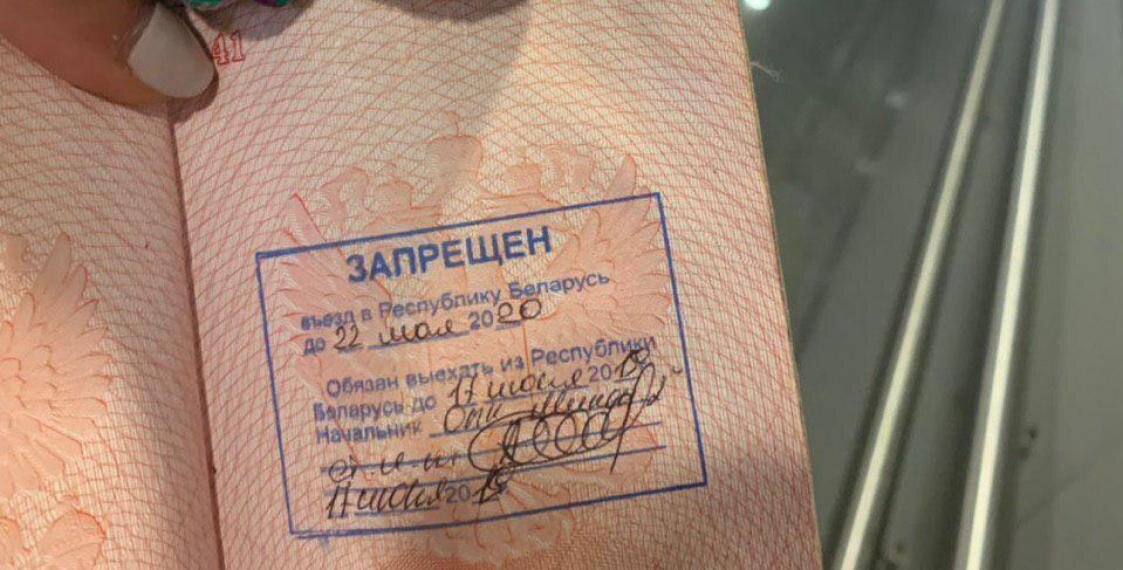 41
ЗАПРЕЩЕН
въезд в Республику Беларусь
до 22 мая 2020
Обязан выехать из Республики
Беларусь до 17 июня 2019
Начальник
17 июня 2019